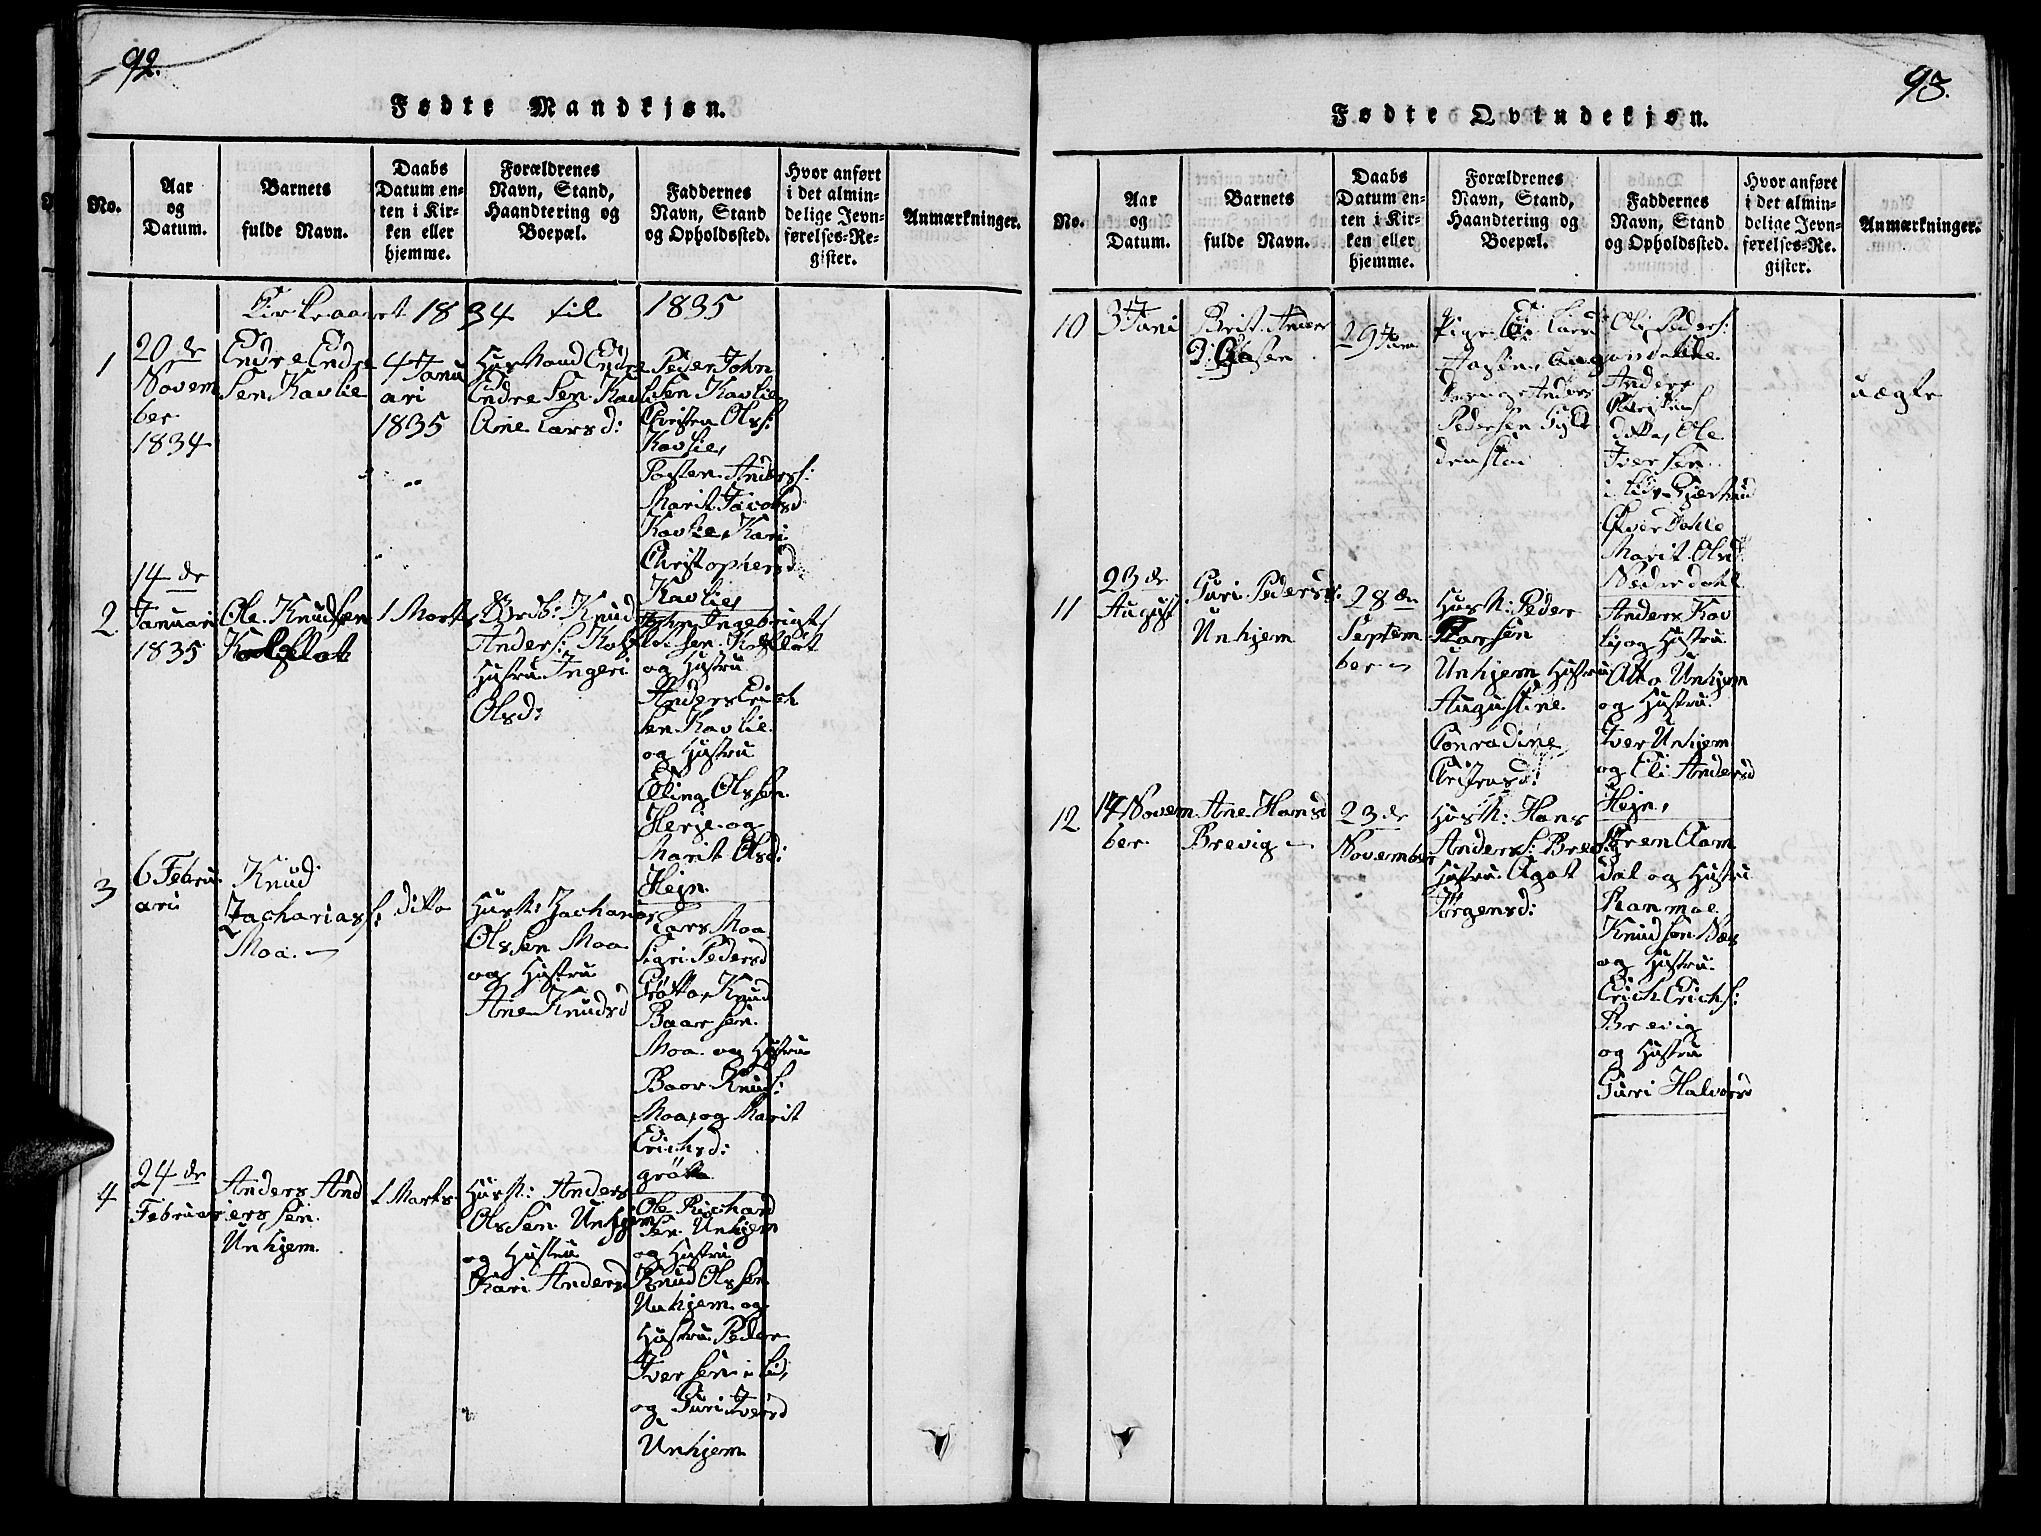 92.
Fødte Mandkjøn.
No.
Aar
og
Datum.
Barnets
fulde Navn.
Daabs
Datum en-
ten i Kir-
ken eller
hjemme.
Forældrenes
Navn, Stand,
Haandtering og
Boepæl.
Faddernes
Navn, Stand
og Opholdssted.
Hvor anført
i det almin-
delige Jevn-
førelses-Re-
gister.
Anmærkninger.
Kirkeaaret 1834 til 1835
1
20 de
Novem
ber
1834
Endre Endre
Sen Kavlie
4 Janu
ari
1835
Husmand Endre
Endre Sen Kavli
Ane Larsd:
Peder John
Sen Kavlie
Christen Olss:
Kavlie,
Torsten Anders:
Marit Jacobsd
Kavlie, Kari
Christophersd
Kavlie,
2
14 de
Januari
1835
Ole Knudsen
1 Marts
Knud
Anders:
Hustru Ingeri
Olsd:
John Ingebrigt
sen
og Hustru
Anders Erich
sen Kavlie
og Hustru
Elling Olssen
Herje og
Marit Olsd:
Hejn.
3
6 Febru
ari
Knud
Zacharias:
Moa.
ditto
Husm: Zacharias
Olssen Moa
og Hustru
Ane Knudsd
Lars Moa
Sigri Pedersd
Grötta, Knud
Baarsen
Moa og Hustru
Baar Knuds:
Moa, og Marit
Erichsd:
grötta
4
24 de
Februar
Anders And
ersSen
Unhjem.
1 Marts
Husm: Anders
OlsSen Unhjem
og Hustru
Kari Andersd
Ole Richard
Sen Unhjem
og Hustru
Knud Olssen
Unhjem og
Hustru Peder
Iversen i Lid,
og Guri Iversd
Unhjem
93.
Fødte Qvindekjøn.
No.
Aar
og
Datum.
Barnets
fulde Navn.
Daabs
Datum en-
ten i Kir-
ken eller
hjemme.
Forældrenes
Navn, Stand,
Haandtering og
Boepæl.
Faddernes
Navn, Stand
og Opholdssted.
Hvor anført
i det almin-
delige Jevn-
førelses-Re-
gister.
Anmærkninger.
10
3 Juni
Brit Anders
D:
29 Juni
Pige
Anders
Pedersen
Ole Peders:
Anders
ditto, Ole
Iversen
i Lid
Marit Olsd
Nedre dahl
uægte
11
23 de
August
Guri Pedersd:
Unhjem
28 de
Septem
ber
Husm: Peder
Larsen
Unhjem Hustru
Augustine
Conradine
Cristensd:
Anders Kav
li og Hustru
Otto Unhjem
og Hustru
Iver Unhjem
og Eli Andersd
Hejn,
12
14 Novem
ber.
Ane Hansd
Brevig
23 de
November
Husm: Hans
Anders: Brevig
Hustru Agat
Jörgensd:
dal og Hustru
Knudsen Næs
og Hustru
Erich Erichs:
Brevig
og Hustru
Guri Halvorsd